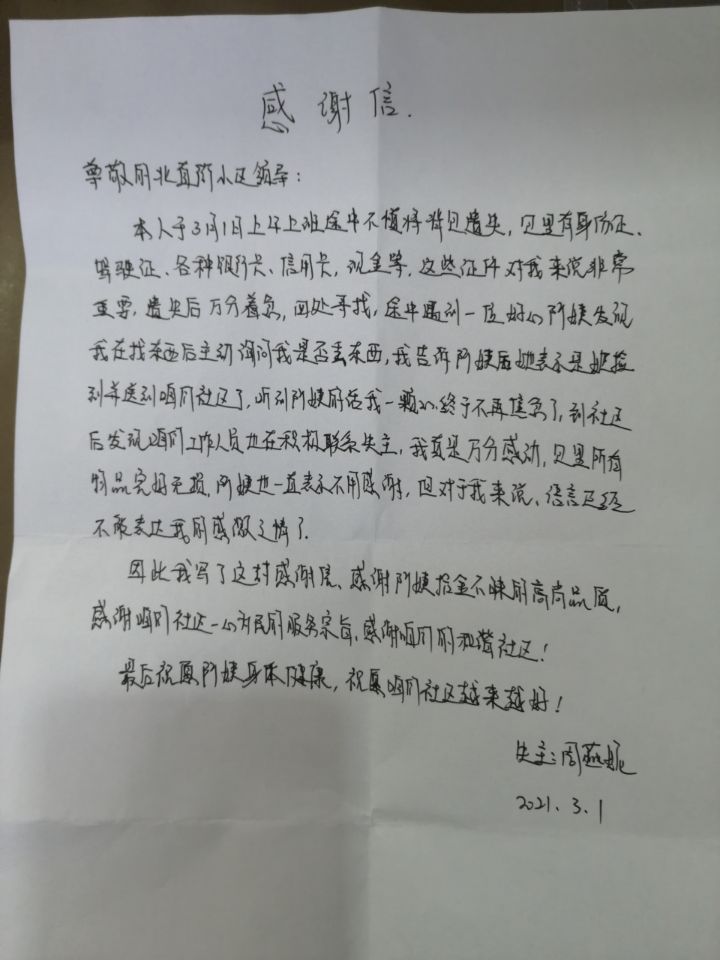 感谢信.
尊敬的北直街小区领导：
本人于3月1日上午上班途中不慎将背包遗失，包里有身份证、
驾驶证、各种银行卡、信用卡、现金等，这些证件对我来说非常
重要，遗失后万分着急，四处寻找，途中遇到一位好心阿姨发现
我在找东西后主动询问我是否丢东西，我告诉阿姨后她表示是她捡
到并送到咱们社区了，听到阿姨的话我一颗心终于不再焦急了，到社区
后发现咱们工作人员也在积极联系失主，我真是万分感动，包里所有
物品完好无损，阿姨也一直表示不用感谢，但对于我来说，语言已经
不能表达我的感激之情了.
因此我写了这封感谢信、感谢阿姨拾金不昧的高尚品质，
感谢咱们社区一心为民的服务宗旨，感谢咱们的和谐社区！
最后祝愿阿姨身体健康，祝愿咱们社区越来越好！
失主：周燕妮
2021.3.1